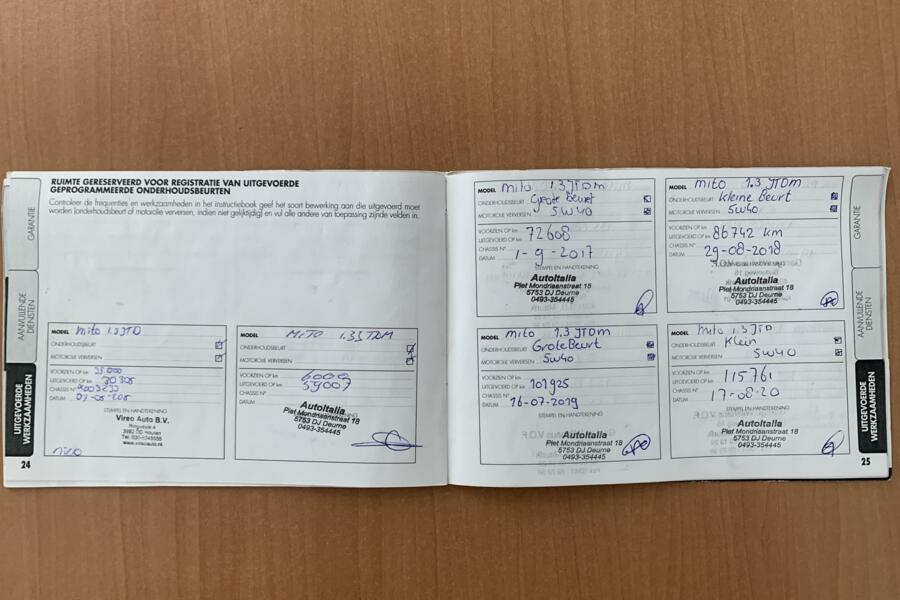 RUIMTE GERESERVEERD VOOR REGISTRATIE VAN UITGEVOERDE
GEPROGRAMMEERDE ONDERHOUDSBEURTEN
Controleer de frequenties en werkzaamheden in het instructieboek geef het soort bewerking aan die uitgevoerd moet
worden (onderhoudsbeurt of motorolie verversen, indien niet gelijktijdig) en vul alle andere van toepassing zijnde velden in.
GARANTIE
AANVULLENDE
DIENSTEN
UITGEVOERDE
WERKZAAMHEDEN
24
MODEL Mito 1.3 JTD
ONDERHOUDSBEURT
MOTOROLIE VERVERSEN
VOORZIEN OP km
UITGEVOERD OP km 30305
CHASSIS N°
DATUM
STEMPEL EN HANDTEKENING
Vireo Auto B.V.
MODEL MiTO 1.3 JTDM
ONDERHOUDSBEURT
MOTOROLIE VERVERSEN
VOORZIEN OP km
UITGEVOERD OP km 59007
CHASSIS N°
DATUM
STEMPEL EN HANDTEKENING
AutoItalia
Piet Mondriaanstraat 18
5753 DJ Deurne
0493-354445
MODEL mito 1.3 JTDm
ONDERHOUDSBEURT Grote Beurt
MOTOROLIE VERVERSEN 5W40
VOORZIEN OP km
UITGEVOERD OP km 72608
CHASSIS N°
DATUM 1-9-2017
STEMPEL EN HANDTEKENING
AutoItalia
Piet Mondriaanstraat 18
5753 DJ Deurne
0493-354445
MODEL mito 1.3 JTDm
ONDERHOUDSBEURT Kleine Beurt
MOTOROLIE VERVERSEN 5W40
VOORZIEN OP km
UITGEVOERD OP km 86742 km
CHASSIS N°
DATUM 29-08-2018
AutoItalia
Piet Mondriaanstraat 18
5753 DJ Deurne
0493-354445
MODEL mito 1.3 JTDm
ONDERHOUDSBEURT Grote Beurt
MOTOROLIE VERVERSEN 5W40
VOORZIEN OP km
UITGEVOERD OP km 101925
CHASSIS N°
DATUM 16-07-2019
STEMPEL EN HANDTEKENING
AutoItalia
Piet Mondriaanstraat 18
5753 DJ Deurne
0493-354445
MODEL mito 1.3 JTD
ONDERHOUDSBEURT Klein
MOTOROLIE VERVERSEN 5W40
VOORZIEN OP km
UITGEVOERD OP km 115761
CHASSIS N°
DATUM 17-08-20
STEMPEL EN HANDTEKENING
AutoItalia
Piet Mondriaanstraat 18
5753 DJ Deurne
0493-354445
GARANTIE
AANVULLENDE
DIENSTEN
UITGEVOERDE
WERKZAAMHEDEN
25